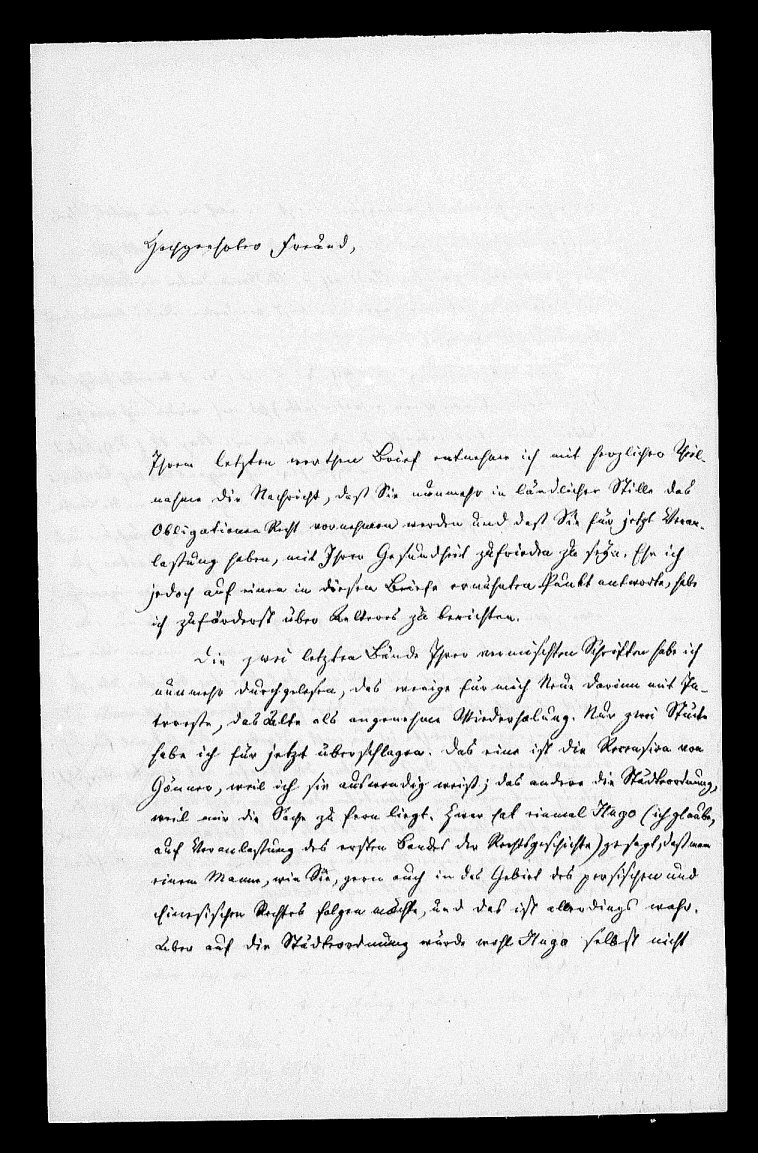 Hochverehrter Freund,
Ihrem letzten werthen Brief entnehme ich mit herzlicher Theil-
nahme die Nachricht, daß Sie nunmehr in ländlicher Stille das
Obligationen Recht vornehmen werden und daß Sie für jetzt Veran-
lassung haben, mit Ihrer Gesundheit zufrieden zu seyn. Ehe ich
jedoch auf einen in diesem Briefe erwähnten Punkt antworte, habe
ich zuförderst über Aelteres zu berichten.
Die zwei letzten Bände Ihrer vermischten Schriften habe ich
nunmehr durchgelesen, das wenige für mich Neue darinn mit In-
teresse, das Alte als angenehme Wiederholung. Nur zwei Stücke
habe ich für jetzt überschlagen. Das eine ist die Recension von
Gönner, weil ich sie auswendig weiß; das andere die Städteordnung,
weil mir die Sache zu fern liegt. Zwar hat einmal Hugo (ich glaube,
auf Veranlassung des ersten Bandes der Rechtsgeschichte) gesagt, daß man
einem Manne, wie Sie, gern auch in das Gebiet des persischen und
chinesischen Rechtes folgen möchte, und das ist allerdings wahr.
Aber auf die Städteordnung würde wohl Hugo selbst nicht